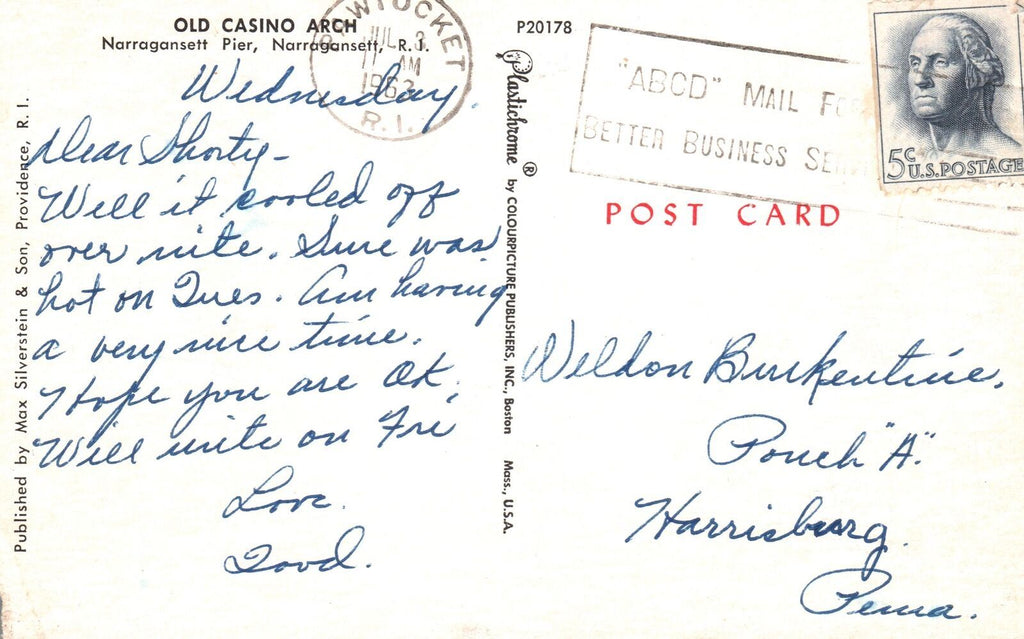 OLD CASINO ARCH
Narragansett Pier, Narragansett, R. I.
P20178
PAWTUCKET
JUL 3
11 AM
1963
R. I.
"ABCD" MAIL FOR
BETTER BUSINESS SERVI
5c
U.S. POSTAGE
Wednesday.
Dear Shorty-
Well it cooled off
over nite. Sure was
hot on Tues. Am having
a very nice time.
Hope you are OK.
Will write on Fri
Love.
POST CARD
Weldon Burkentine,
Pouch "A".
Harrisburg.
Penna.
Published by Max Silverstein & Son, Providence, R. I.
Plastichrome ® by COLOURPICTURE PUBLISHERS, INC., Boston Mass., U.S.A.